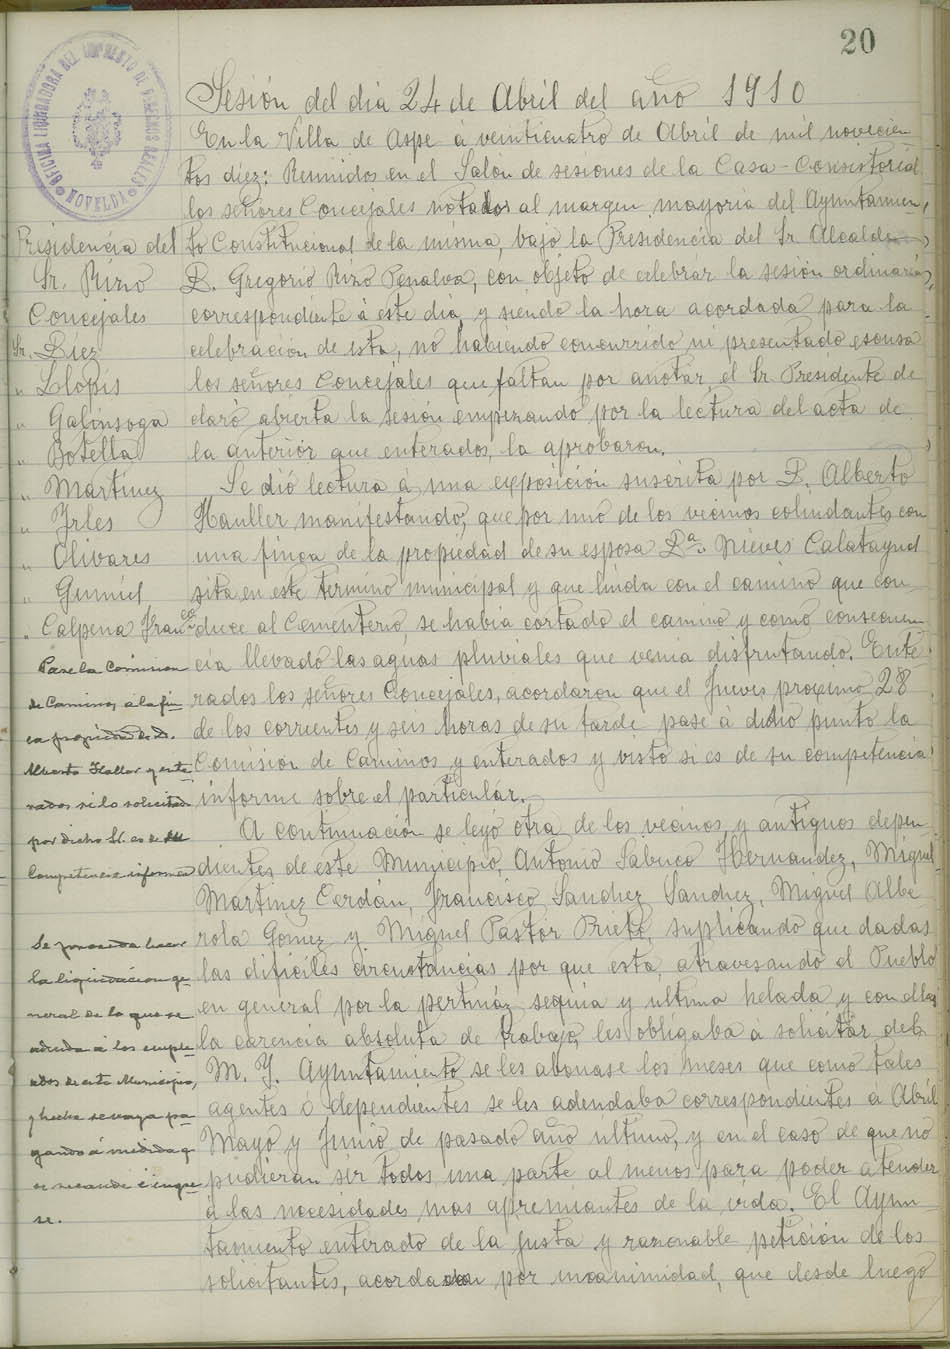 20
OFICINA LIQUIDADORA DEL IMPUESTO DE DERECHOS REALES
NOVELDA
Sesión del dia 24 de Abril del año 1910
En la Villa de Aspe á veinticuatro de Abril de mil novecien
tos diez: Reunidos en el Salón de sesiones de la Casa-Consistorial
los señores Concejales notados al margen, mayoria del Ayuntamien,
to Constitucional de la misma, bajo la Presidencia del Sr Alcalde
D. Gregorio Rizo Penalva, con objeto de celebrar la sesión ordinaria
correspondiente á este dia, y siendo la hora acordada para la
celebración de esta, no habiendo concurrido ni presentado escusa
los señores Concejales que faltan por anotar, el Sr Presidente de
claró abierta la sesión empezando por la lectura del acta de
la anterior que enterados, la aprobaron.
Se dió lectura á una exposición suscrita por D. Alberto
Hauller manifestando, que por uno de los vecinos colindantes con
una finca de la propiedad de su esposa Dª. Nieves Calatayud
sita en este término municipal y que linda con el camino que con
duce al Cementerio, se habia cortado el camino y como consecuen
cia llevado las aguas pluviales que venia disfrutando. Ente
rados los señores Concejales, acordaron que el Jueves proximo 28
de los corrientes y seis horas de su tarde pase á dicho punto la
Comisión de Caminos y enterados y visto si es de su competencia
informe sobre el particular.
A continuación se leyó otra de los vecinos y antiguos depen
dientes de este Municipio, Antonio Sabuco Hernandez, Miguel
Martinez Cerdán, Francisco Sanchez Sanchez, Miguel Albe
rola Gomez y Miguel Pastor Prieto, suplicando que dadas
las dificiles circustancias por que esta atravesando el Pueblo
en general por la pertináz sequia y ultima helada y con ellas
la carencia absoluta de trabajo, les obligaba á solicitar del
M. Y. Ayuntamiento se les abonase los meses que como tales
agentes ó dependientes se les adeudaba correspondientes á Abril
Mayo y Junio de pasado año último, y en el caso de que no
pudieran sir todos, una parte al menos para poder atender
á las necesidades mas apremiantes de la vida. El Ayun
tamiento enterado de la justa y razonable petición de los
solicitantes, acorda por unanimidad, que desde luego
Presidencia del
Sr. Rizo
Concejales
Sr. Diez
" Llopis
" Galinsoga
" Botella
" Martinez
" Yrles
" Olivares
" Gumiel
" Calpena Franco
Pase la Comision
de Caminos á la fin
ca propiedad de D.
Alberto Hallor y ente
rados si lo solicitado
por dicho Sr. es de su
Competencia informen
Se proceda hacer
la liquidacion ge
neral de lo que se
adeuda á los emple
ados de este Municipio,
y hecho se vaya pa
gando á medida q
se recaude é ingre
se.